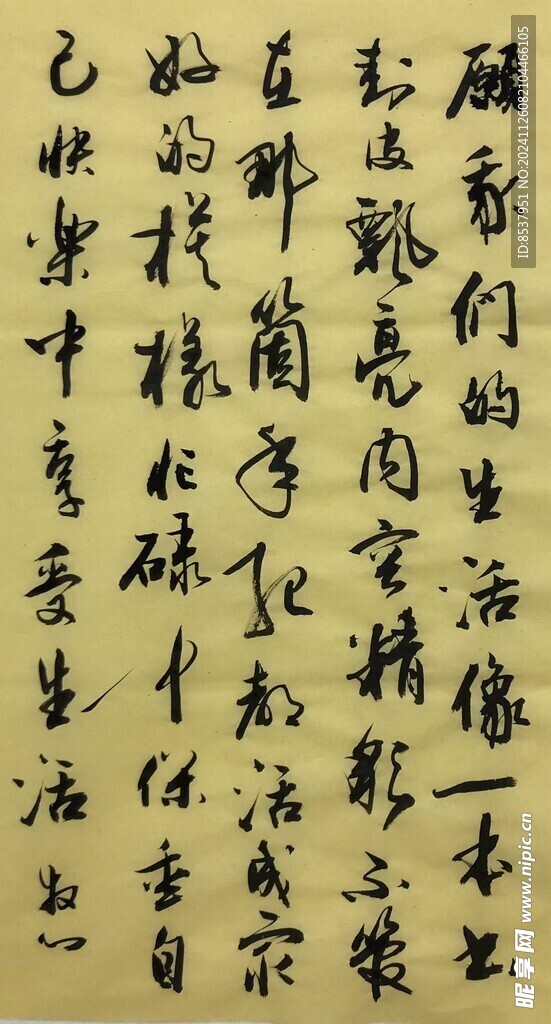 願我們的生活像一本书
封皮飄亮内容精彩不管
在那箇年纪都活成最
好的模樣忙碌中保重自
己快樂中享受生活
ID:8537951 NO:20241126082104466105
昵享网 www.nipic.cn